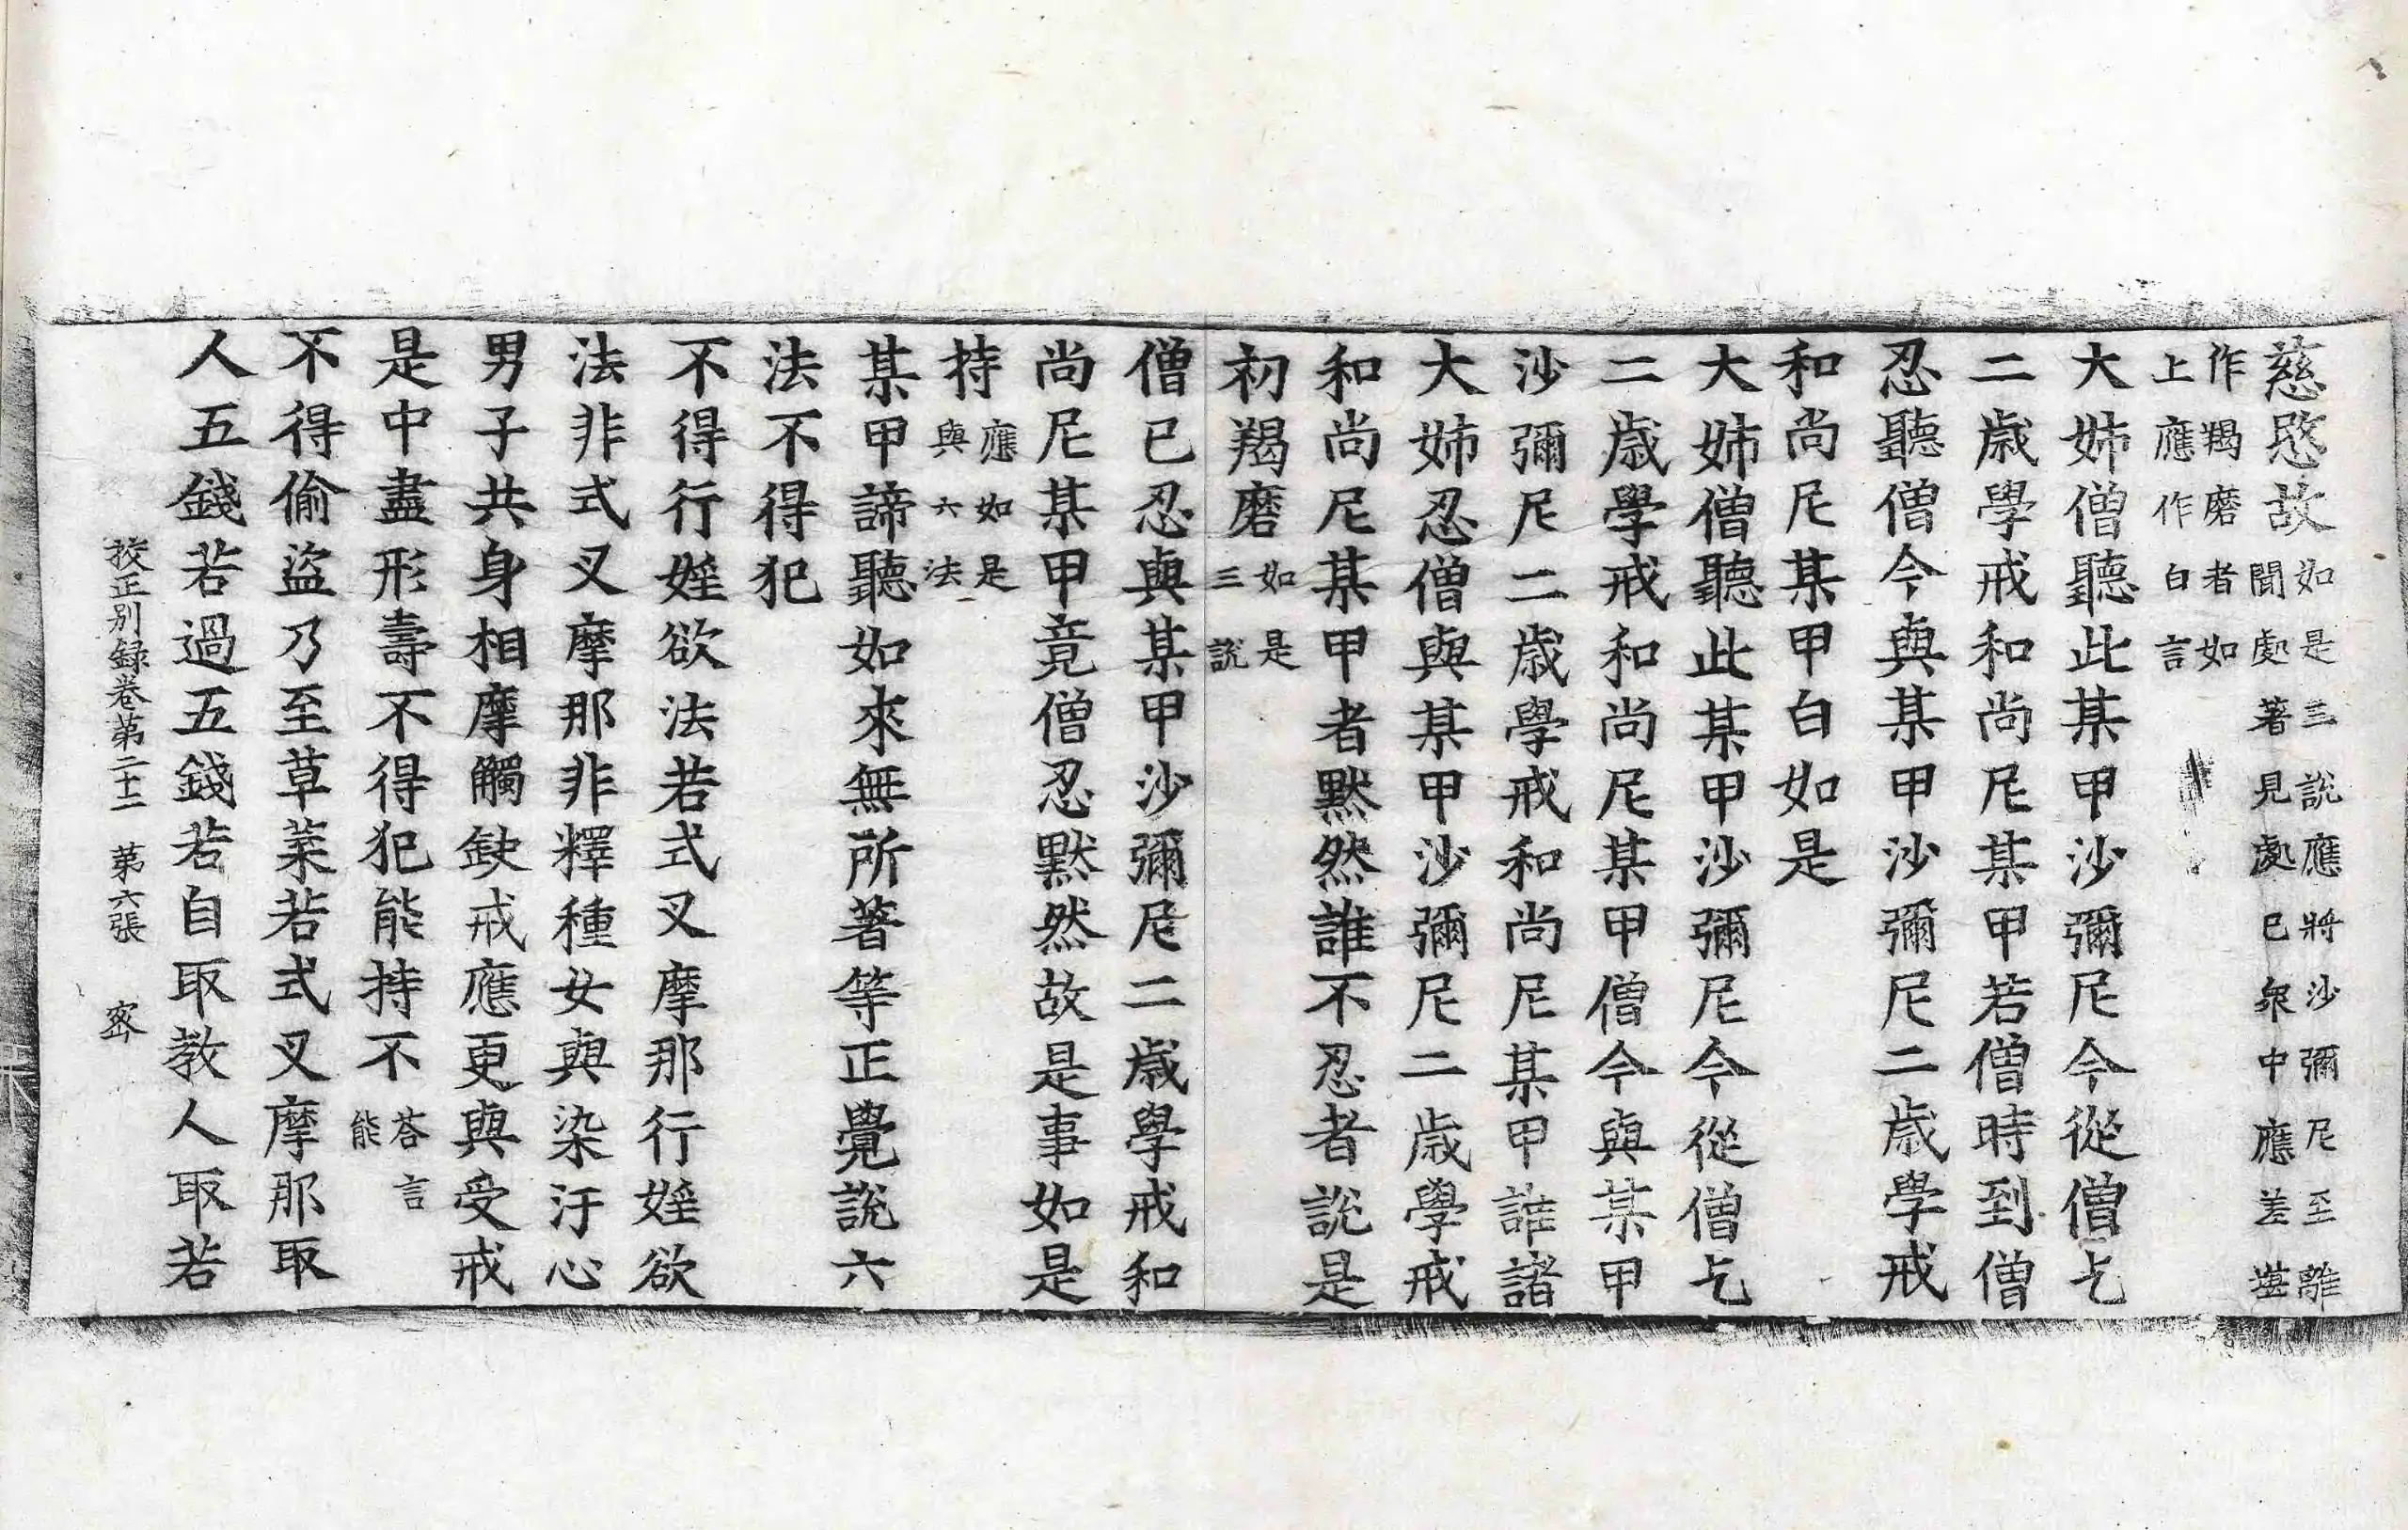 慈愍故如是三說應將沙彌尼至離聞處著見處已衆中應差堪
作羯磨者如上應作白言
大姉僧聽此某甲沙彌尼今從僧乞
二歲學戒和尚尼某甲若僧時到僧
忍聽僧今與某甲沙彌尼二歲學戒
和尚尼某甲白如是
大姉僧聽此某甲沙彌尼今從僧乞
二歲學戒和尚尼某甲僧今與某甲
沙彌尼二歲學戒和尚尼某甲誰諸
大姉忍僧與某甲沙彌尼二歲學戒
和尚尼某甲者默然誰不忍者說是
初羯磨如是三說
僧已忍與某甲沙彌尼二歲學戒和
尚尼某甲竟僧忍默然故是事如是
持應如是與六法
某甲諦聽如來無所著等正覺說六
法不得犯
不得行婬欲法若式叉摩那行婬欲
法非式叉摩那非釋種女與染汙心
男子共身相摩觸缺戒應更與受戒
是中盡形壽不得犯能持不荅言能
不得偷盜乃至草葉若式叉摩那取
人五錢若過五錢若自取教人取若
校正別録卷第二十二 第六張 密